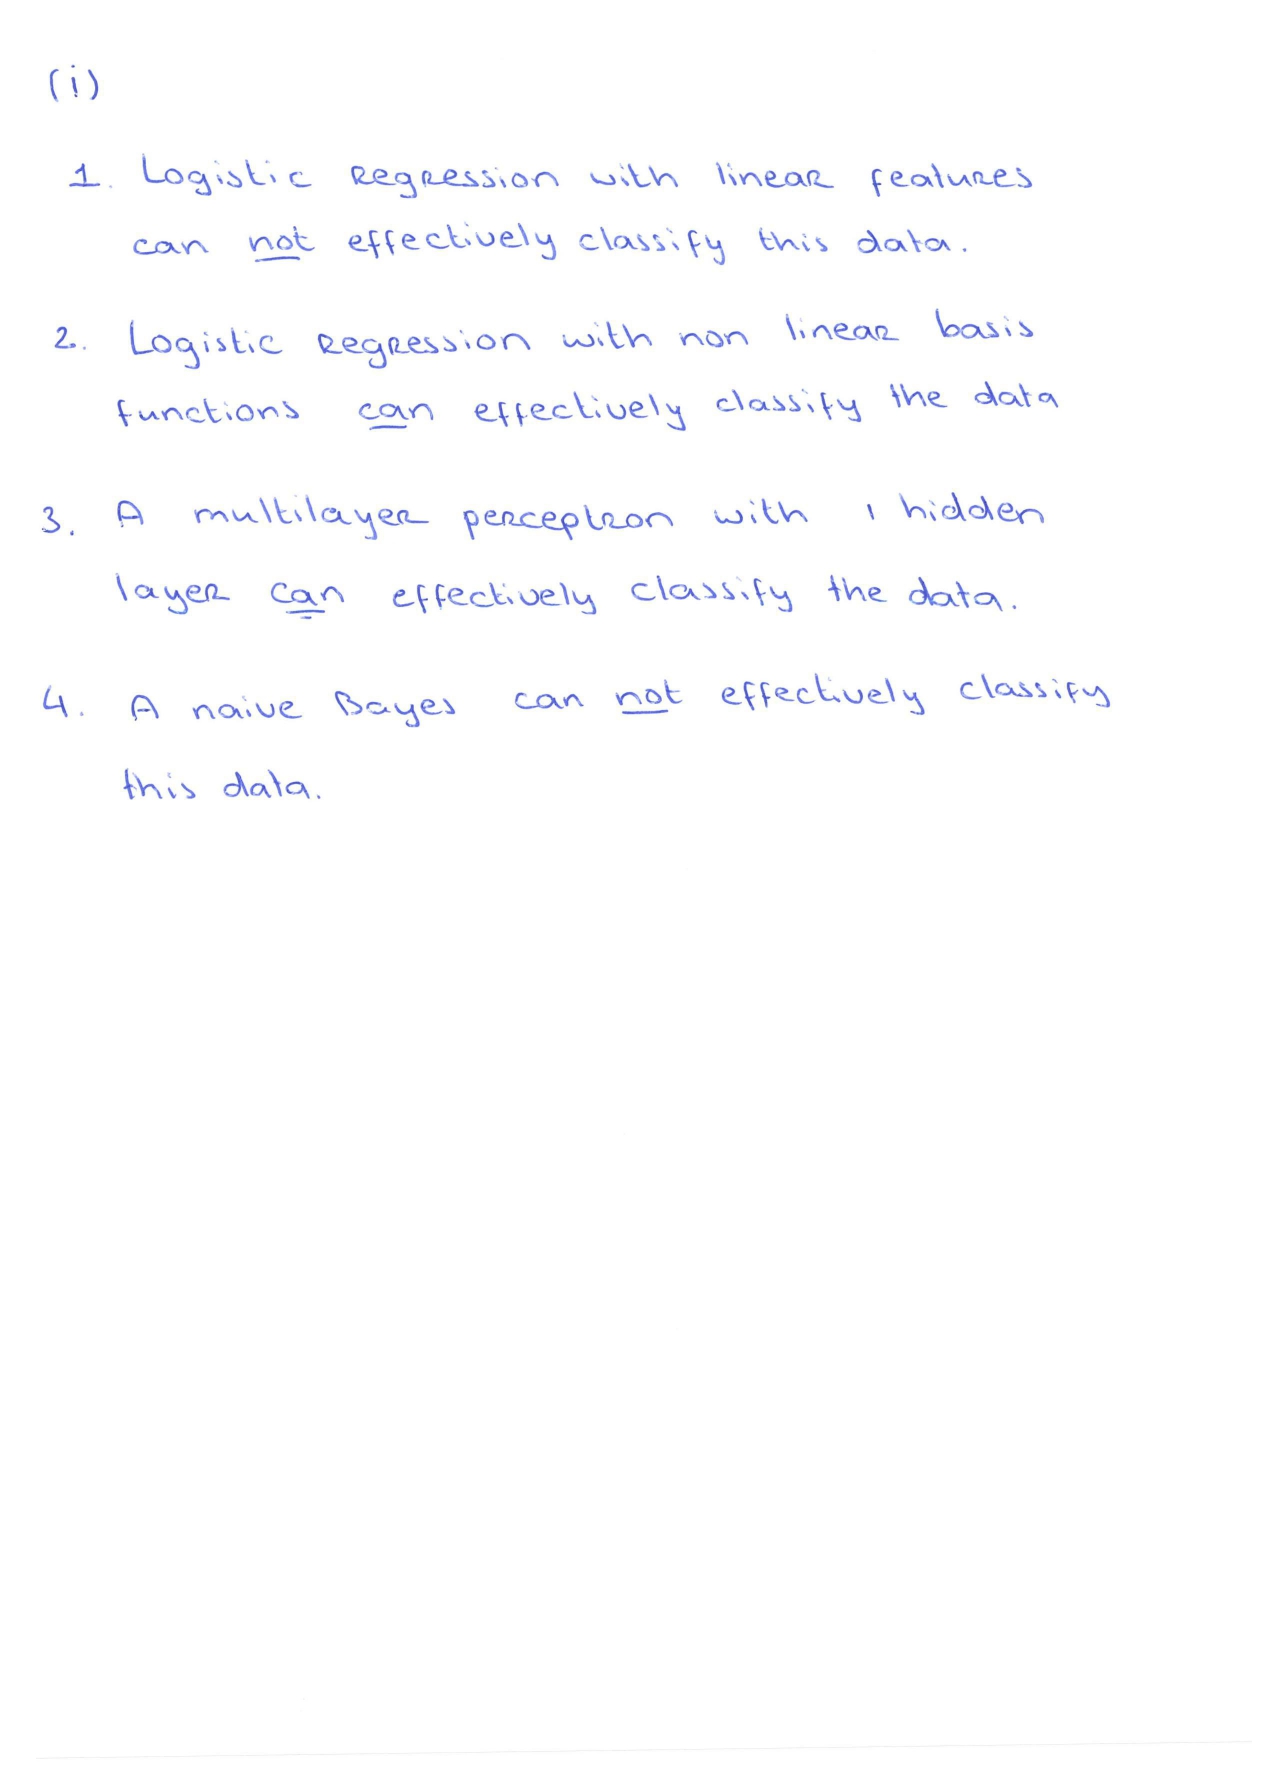 (i)
1. Logistic Regression with linear features
can not effectively classify this data.
2. Logistic Regression with non linear basis
functions can effectively classify the data
3. A multilayer perceptron with 1 hidden
layer can effectively classify the data.
4. A naive Bayes can not effectively classify
this data.